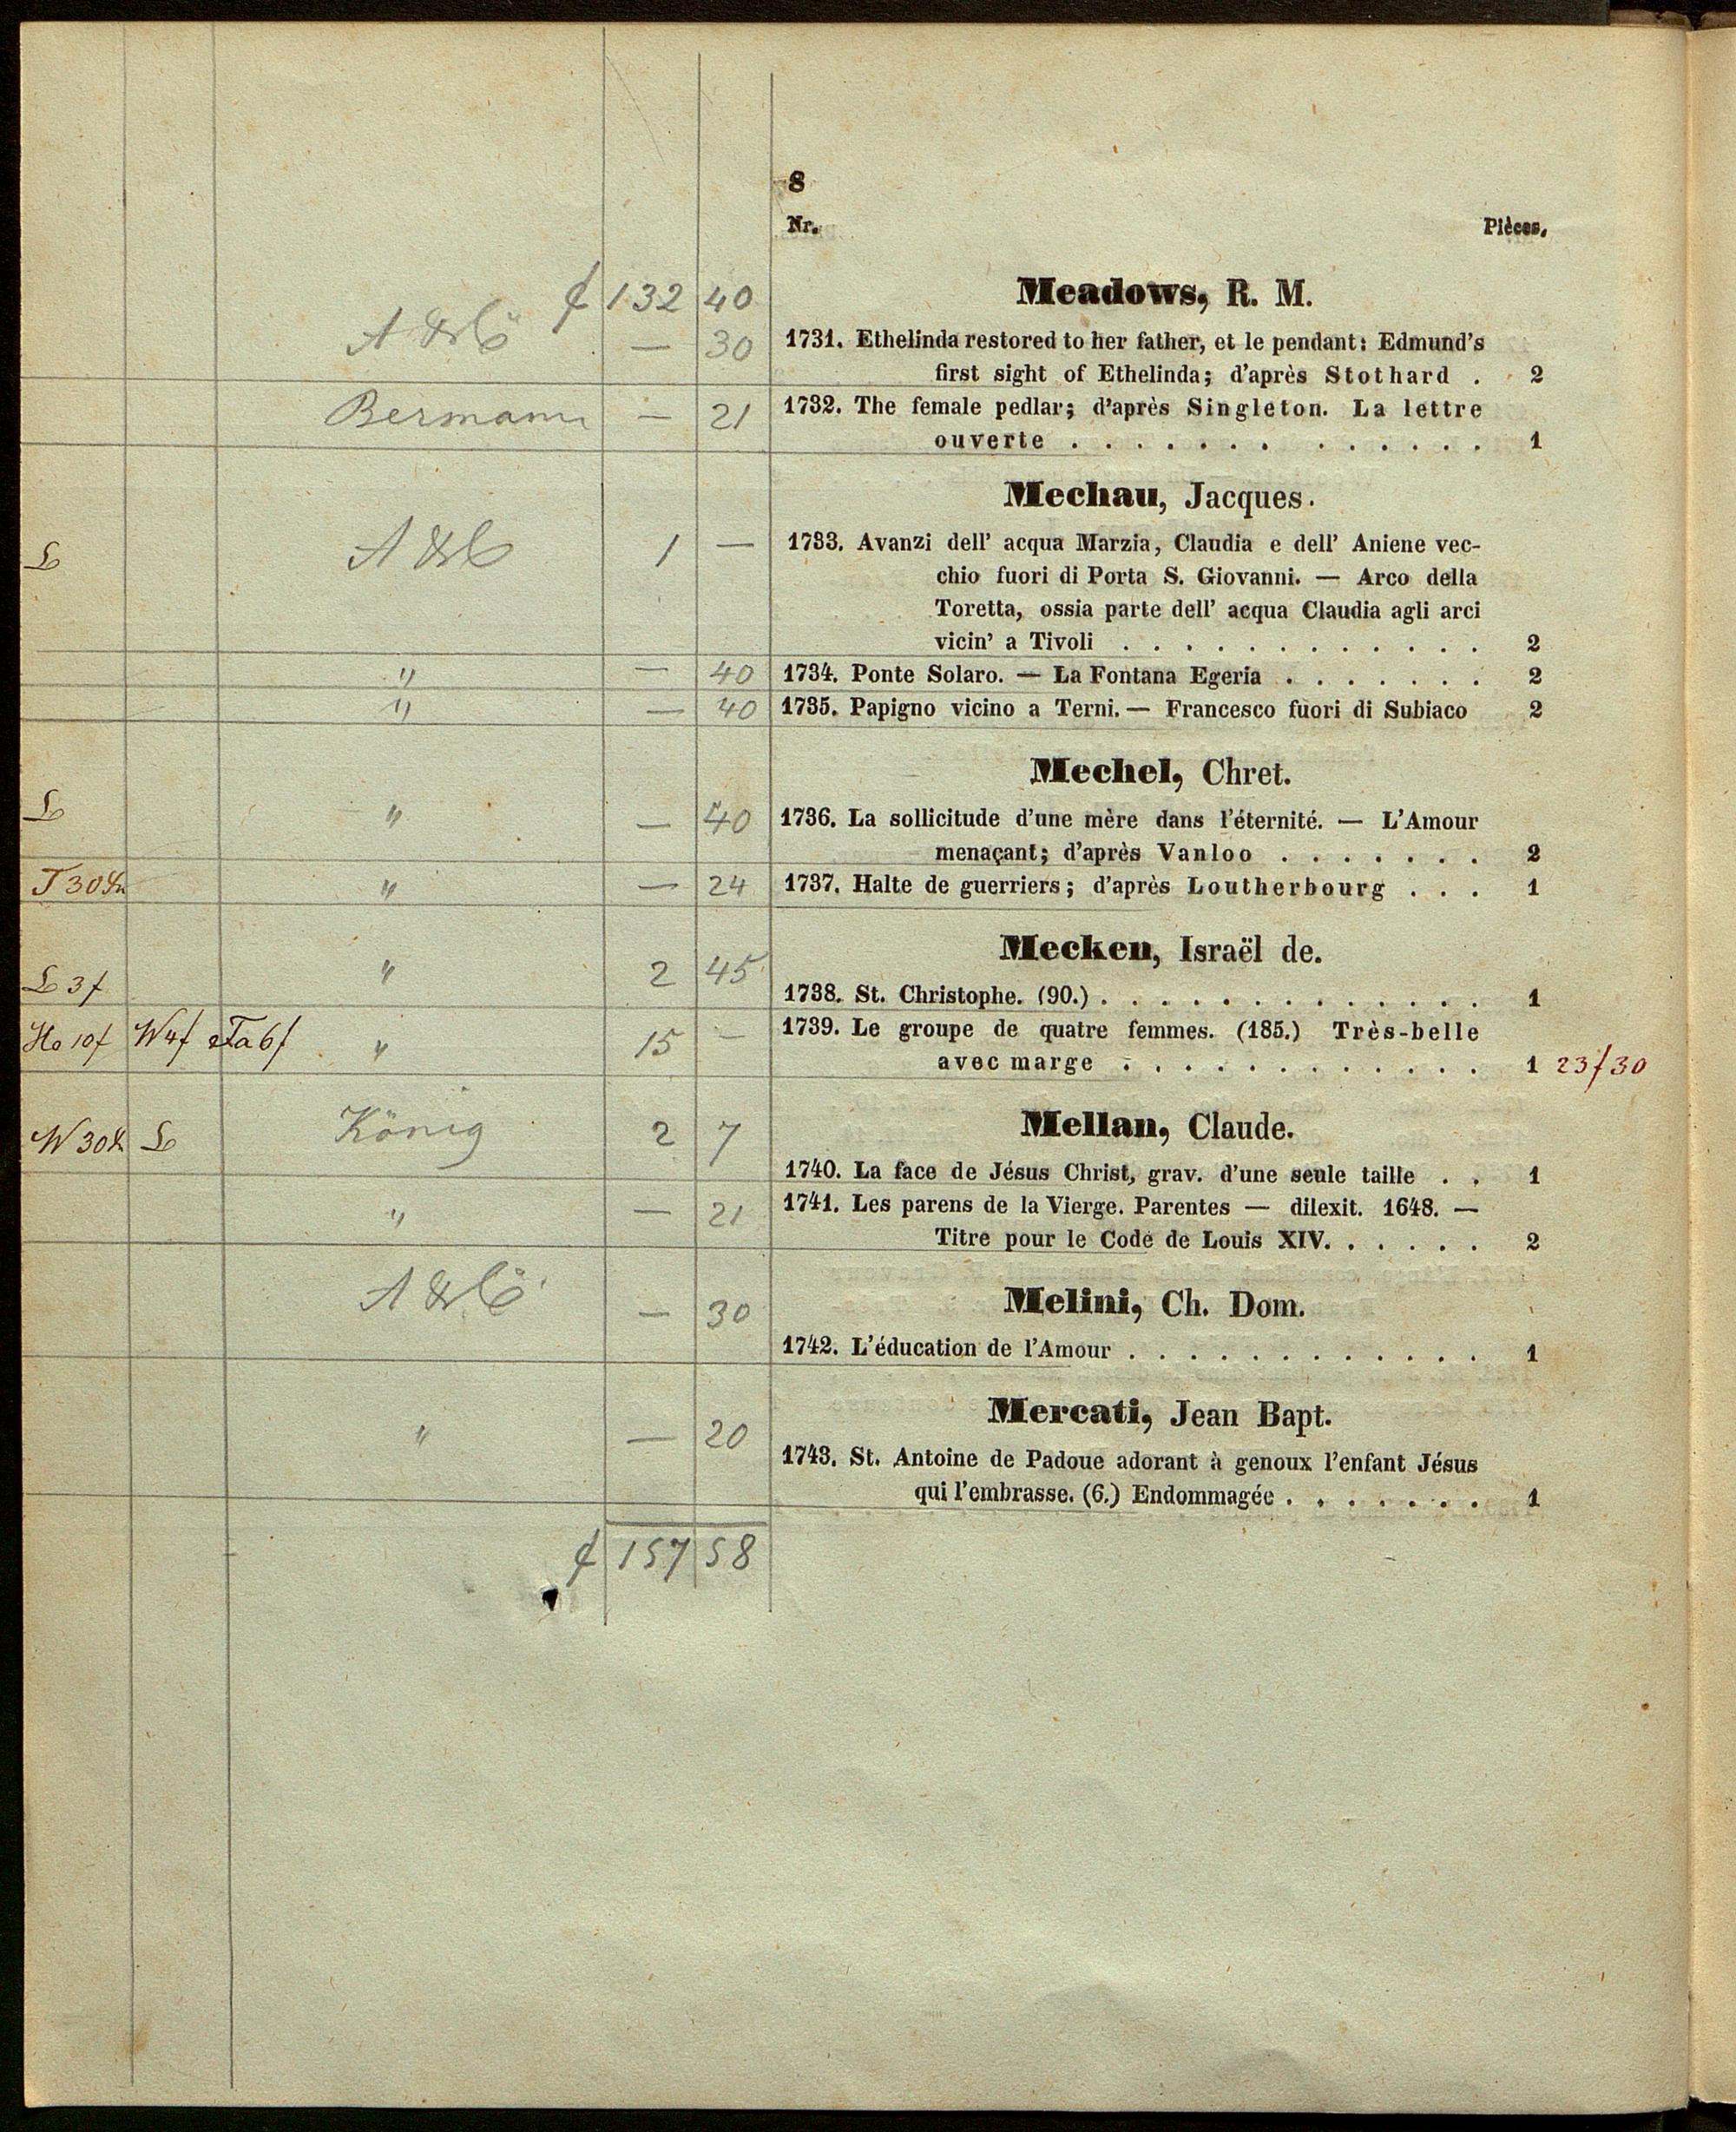 8
Nr. Pièces.
f 132 40
Meadows, R. M.
— 30 1731. Ethelinda restored to her father, et le pendant: Edmund's
first sight of Ethelinda; d'après Stothard . 2
Bermann — 21 1732. The female pedlar; d'après Singleton. La lettre
ouverte . . . . . . . . . . . . . 1
Mechau, Jacques.
1 — 1733. Avanzi dell' acqua Marzia, Claudia e dell' Aniene vec-
chio fuori di Porta S. Giovanni. — Arco della
Toretta, ossia parte dell' acqua Claudia agli arci
vicin' a Tivoli . . . . . . . . . . . . 2
" — 40 1734. Ponte Solaro. — La Fontana Egeria . . . . . . . 2
" — 40 1735. Papigno vicino a Terni. — Francesco fuori di Subiaco 2
Mechel, Chret.
" — 40 1736. La sollicitude d'une mère dans l'éternité. — L'Amour
menaçant; d'après Vanloo . . . . . . . 2
" — 24 1737. Halte de guerriers; d'après Loutherbourg . . . 1
Mecken, Israël de.
" 2 45 1738. St. Christophe. (90.) . . . . . . . . . . . . . 1
Ho 10f W4f " 15 — 1739. Le groupe de quatre femmes. (185.) Très-belle
avec marge . . . . . . . . . . . . 1 23f30
Mellan, Claude.
König 2 7 1740. La face de Jésus Christ, grav. d'une seule taille . . 1
" — 21 1741. Les parens de la Vierge. Parentes — dilexit. 1648. —
Titre pour le Code de Louis XIV. . . . . . 2
Melini, Ch. Dom.
— 30 1742. L'éducation de l'Amour . . . . . . . . . . . . 1
Mercati, Jean Bapt.
" — 20 1743. St. Antoine de Padoue adorant à genoux l'enfant Jésus
qui l'embrasse. (6.) Endommagée . . . . . . . 1
f 157 58